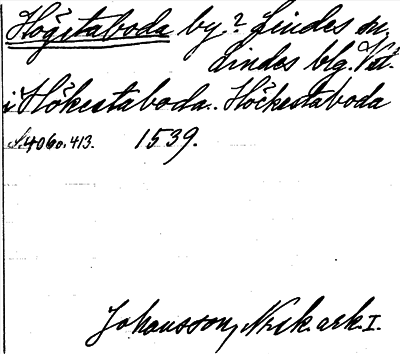 Högstaboda by? Lindes sn,
Lindes blg. Vstl.
i Hökestaboda.. Höckestaboda
s. 406 o. 413. 1539.
Johansson, Nor.k.ark.I.